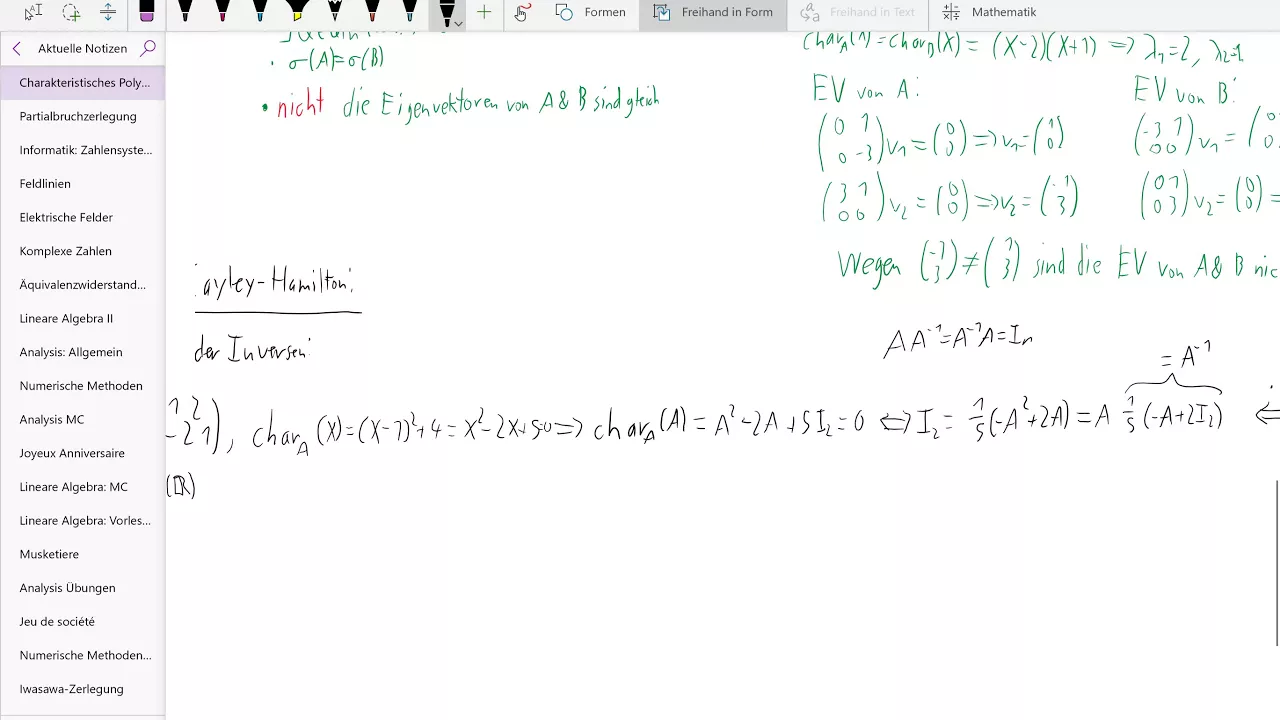 Formen
Freihand in Form
Freihand in Text
Mathematik
Aktuelle Notizen
Charakteristisches Poly...
Partialbruchzerlegung
Informatik: Zahlensyste...
Feldlinien
Elektrische Felder
Komplexe Zahlen
Äquivalenzwiderstand...
Lineare Algebra II
Analysis: Allgemein
Numerische Methoden
Analysis MC
Joyeux Anniversaire
Lineare Algebra: MC
Lineare Algebra: Vorles...
Musketiere
Analysis Übungen
Jeu de société
Numerische Methoden...
Iwasawa-Zerlegung
· σ(A)=σ(B)
• nicht die Eigenvektoren von A & B sind gleich
char_A(X)=char_B(X)=(X-2)(X+1) ⇒ λ₁=2, λ₂=1
EV von A:
EV von B:
(0 1; 0 -3)v₁=(0; 0)⇒v₁=(1; 0)
(-3 1; 0 0)v₁=(0; 0
(3 1; 0 0)v₂=(0; 0)⇒v₂=(-1; 3)
(0 1; 0 3)v₂=(0; 0)=
Wegen (-1; 3)≠(1; 3) sind die EV von A & B nic
ayley-Hamilton:
der Inversen:
AA⁻¹=A⁻¹A=Iₙ
=A⁻¹
1 2; -2 1), char_A(X)=(X-1)²+4=X²-2X+5=0⇒ char_A(A)=A²-2A+5I₂=0 ⇔ I₂= 1/5(-A²+2A)=A 1/5(-A+2I₂) ⇔
(ℝ)